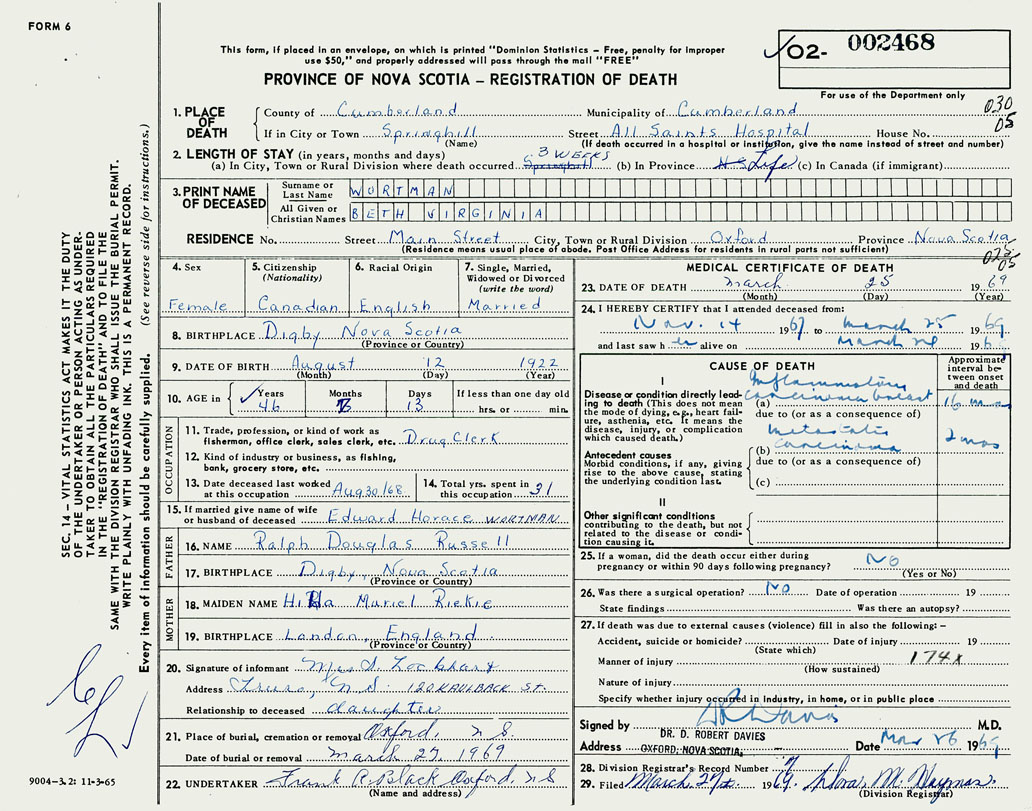 FORM 6
This form, if placed in an envelope, on which is printed "Dominion Statistics – Free, penalty for improper
use $50," and properly addressed will pass through the mail "FREE"
✓02- 002468
For use of the Department only
PROVINCE OF NOVA SCOTIA – REGISTRATION OF DEATH
030
05
1. PLACE OF DEATH County of Cumberland Municipality of Cumberland
If in City or Town Springhill Street All Saints Hospital House No.
(Name) (If death occurred in a hospital or institution, give the name instead of street and number)
2. LENGTH OF STAY (in years, months and days)
(a) In City, Town or Rural Division where death occurred 3 WEEKS (b) In Province Life (c) In Canada (if immigrant)
3. PRINT NAME OF DECEASED Surname or Last Name WORTMAN
All Given or Christian Names BETH VIRGINIA
RESIDENCE No. Street Main Street City, Town or Rural Division Oxford Province Nova Scotia
(Residence means usual place of abode. Post Office Address for residents in rural parts not sufficient)
05
4. Sex Female
5. Citizenship (Nationality) Canadian
6. Racial Origin English
7. Single, Married, Widowed or Divorced (write the word) Married
8. BIRTHPLACE Digby Nova Scotia
(Province or Country)
9. DATE OF BIRTH August 12 1922
(Month) (Day) (Year)
10. AGE in ✓ Years Months Days If less than one day old
46 13 hrs. or min.
OCCUPATION
11. Trade, profession, or kind of work as
fisherman, office clerk, sales clerk, etc. Drug Clerk
12. Kind of industry or business, as fishing,
bank, grocery store, etc.
13. Date deceased last worked at this occupation Aug 30/68
14. Total yrs. spent in this occupation 31
15. If married give name of wife
or husband of deceased Edward Horace WORTMAN
FATHER
16. NAME Ralph Douglas Russell
17. BIRTHPLACE Digby, Nova Scotia
(Province or Country)
MOTHER
18. MAIDEN NAME Hilda Muriel Riekie
19. BIRTHPLACE London, England
(Province or Country)
20. Signature of informant Mrs Lockhart
Address Truro, N.S. 120 KAULBACK ST.
Relationship to deceased daughter
21. Place of burial, cremation or removal Oxford, N S
Date of burial or removal March 27, 1969
22. UNDERTAKER Frank R. Black Oxford, N S
(Name and address)
MEDICAL CERTIFICATE OF DEATH
23. DATE OF DEATH March 25 1969
(Month) (Day) (Year)
24. I HEREBY CERTIFY that I attended deceased from:
Nov. 14 1967 to March 25 1969
and last saw her alive on March 196
CAUSE OF DEATH
Approximate interval between onset and death
I
Disease or condition directly leading to death (This does not mean the mode of dying, e.g., heart failure, asthenia, etc. It means the disease, injury, or complication which caused death.)
(a) Inflammatory carcinoma breast 16 mos
due to (or as a consequence of)
Antecedent causes
Morbid conditions, if any, giving rise to the above cause, stating the underlying condition last.
(b) metastatic carcinoma 2 mos
due to (or as a consequence of)
(c)
II
Other significant conditions
contributing to the death, but not related to the disease or condition causing it.
25. If a woman, did the death occur either during
pregnancy or within 90 days following pregnancy? No
(Yes or No)
26. Was there a surgical operation? No Date of operation 19
State findings Was there an autopsy?
27. If death was due to external causes (violence) fill in also the following: –
Accident, suicide or homicide? Date of injury 19
(State which)
Manner of injury 174X
(How sustained)
Nature of injury
Specify whether injury occurred in industry, in home, or in public place
Signed by D R Davies M.D.
DR. D. ROBERT DAVIES
Address OXFORD, NOVA SCOTIA. Date Mar 26 1969
28. Division Registrar's Record Number 7
29. Filed March 27th. 1969. M. Haynes
(Division Registrar)
SEC. 14 – VITAL STATISTICS ACT MAKES IT THE DUTY
OF THE UNDERTAKER OR PERSON ACTING AS UNDER-
TAKER TO OBTAIN ALL THE PARTICULARS REQUIRED
IN THE "REGISTRATION OF DEATH" AND TO FILE THE
SAME WITH THE DIVISION REGISTRAR WHO SHALL ISSUE THE BURIAL PERMIT.
WRITE PLAINLY WITH UNFADING INK. THIS IS A PERMANENT RECORD.
Every item of information should be carefully supplied. (See reverse side for instructions.)
9004-3.2: 11-3-65